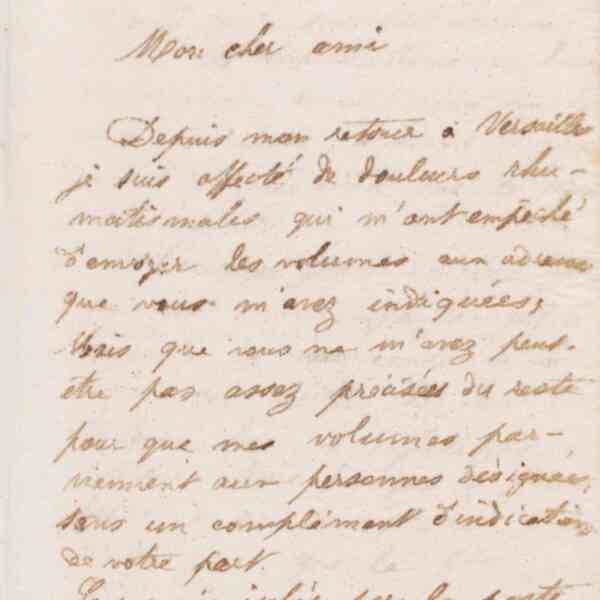 Mon cher ami
Depuis mon retour à Versailles
je suis affecté de douleurs rhu-
matismales qui m'ont empêché
d'envoyer les volumes aux adresses
que vous m'avez indiquées,
Mais que vous ne m'avez peut-
etre pas assez précisées du reste
pour que mes volumes par-
viennent aux personnes désignées,
sans un complément d'indication
de votre part.
par la poste